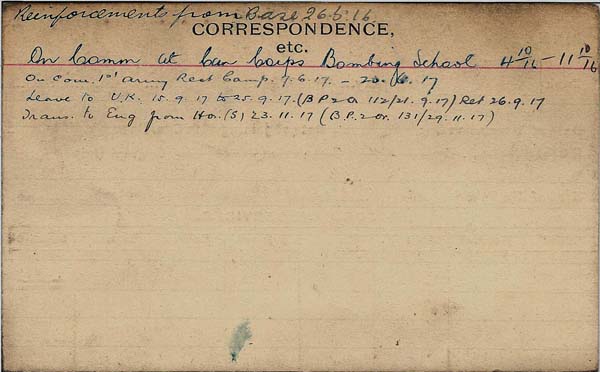 Reinforcements from Base 26-5-16
CORRESPONDENCE,
etc.
On Comm at Can Corps Bombing School 4 10/16 - 11 10/16
On Com. 1st Army Rest Camp. 7.6.17. - 20. 6. 17
Leave to U.K. 15.9.17 to 25.9.17. (B P 2 O 112/21.9.17) Ret 26.9.17
Trans. to Eng from Ho. (S) 23.11.17 (B.P. 2 Or. 131/29.11.17)